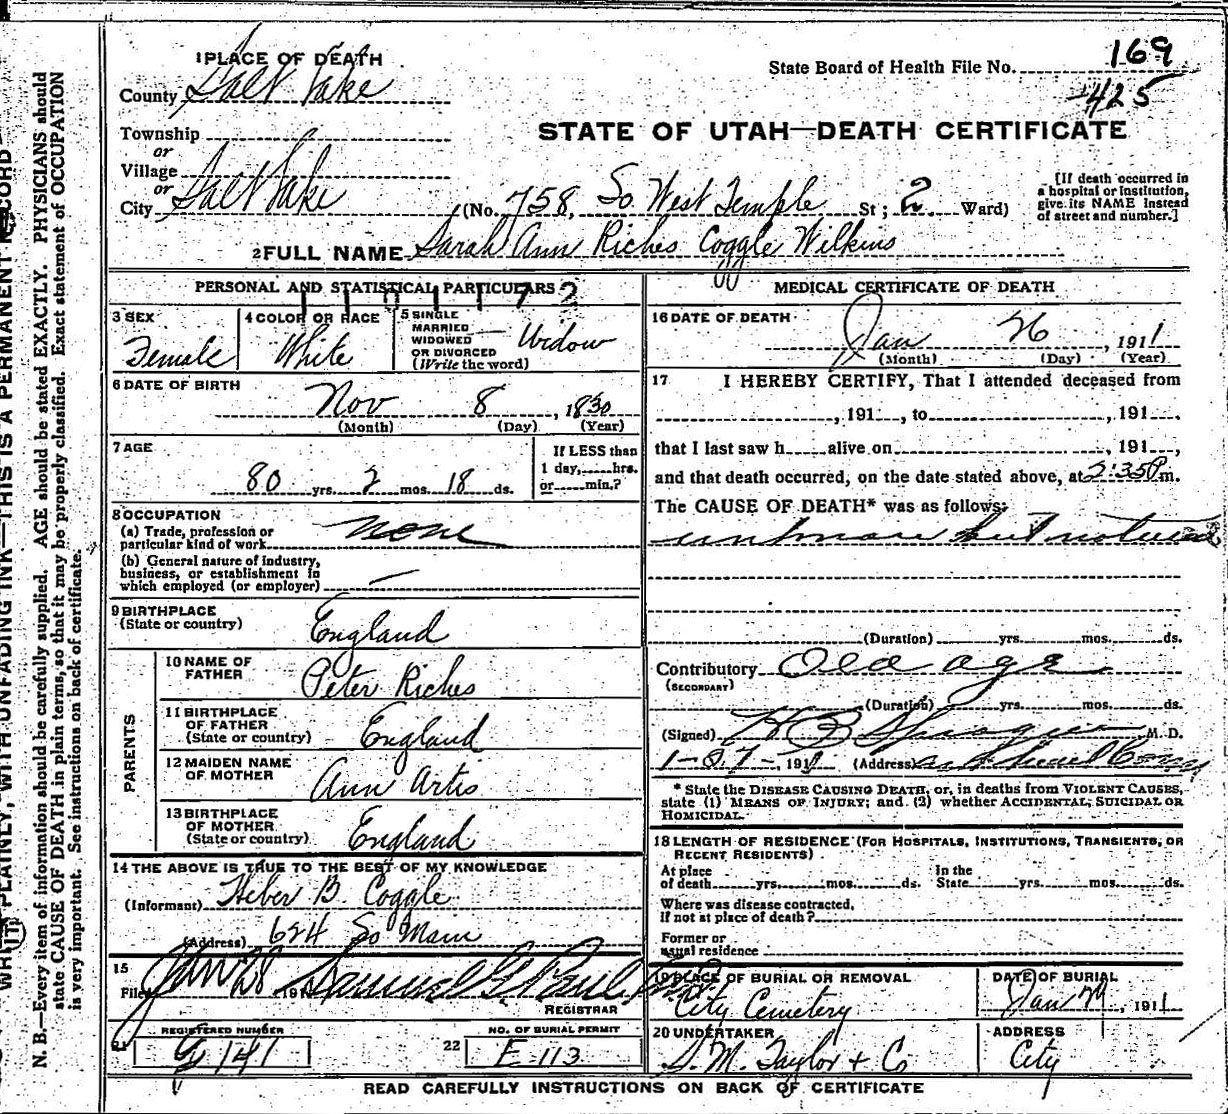 1 PLACE OF DEATH
County Salt Lake
Township
or
Village
or
City Salt Lake
State Board of Health File No. 169
425
STATE OF UTAH—DEATH CERTIFICATE
(No. 758, So. West Temple St; 2. Ward)
[If death occurred in
a hospital or institution,
give its NAME instead
of street and number.]
2 FULL NAME Sarah Ann Riches Coggle Wilkins
PERSONAL AND STATISTICAL PARTICULARS
3 SEX
Female
4 COLOR OR RACE
White
5 SINGLE
MARRIED
WIDOWED
OR DIVORCED
(Write the word)
Widow
6 DATE OF BIRTH
Nov 8, 1830
(Month) (Day) (Year)
7 AGE
80 yrs. 2 mos. 18 ds.
If LESS than
1 day, hrs.
or min.?
8 OCCUPATION
(a) Trade, profession or
particular kind of work none
(b) General nature of industry,
business, or establishment in
which employed (or employer) —
9 BIRTHPLACE
(State or country) England
PARENTS
10 NAME OF
FATHER Peter Riches
11 BIRTHPLACE
OF FATHER
(State or country) England
12 MAIDEN NAME
OF MOTHER Ann Artis
13 BIRTHPLACE
OF MOTHER
(State or country) England
14 THE ABOVE IS TRUE TO THE BEST OF MY KNOWLEDGE
(Informant) Heber B. Coggle
(Address) 624 So Main
15
Filed Jan 28 191 Samuel G. Paul
REGISTRAR
REGISTERED NUMBER
21 G 141
NO. OF BURIAL PERMIT
22 E 113
MEDICAL CERTIFICATE OF DEATH
16 DATE OF DEATH
Jan 26, 1911
(Month) (Day) (Year)
17 I HEREBY CERTIFY, That I attended deceased from
, 191 , to , 191 ,
that I last saw h alive on , 191 ,
and that death occurred, on the date stated above, at 2:35 P m.
The CAUSE OF DEATH* was as follows:
unknown but natural
(Duration) yrs. mos. ds.
Contributory Old age
(SECONDARY)
(Duration) yrs. mos. ds.
(Signed) H B M. D.
1-27-, 1911 (Address)
* State the DISEASE CAUSING DEATH, or, in deaths from VIOLENT CAUSES,
state (1) MEANS OF INJURY; and (2) whether ACCIDENTAL, SUICIDAL OR
HOMICIDAL.
18 LENGTH OF RESIDENCE (FOR HOSPITALS, INSTITUTIONS, TRANSIENTS, OR
RECENT RESIDENTS)
At place
of death yrs. mos. ds.
In the
State yrs. mos. ds.
Where was disease contracted,
if not at place of death?
Former or
usual residence
19 PLACE OF BURIAL OR REMOVAL
City Cemetery
DATE OF BURIAL
Jan 29, 1911
20 UNDERTAKER
S. M. Taylor + Co
ADDRESS
City
READ CAREFULLY INSTRUCTIONS ON BACK OF CERTIFICATE
WRITE PLAINLY, WITH UNFADING INK—THIS IS A PERMANENT RECORD
N. B.—Every item of information should be carefully supplied. AGE should be stated EXACTLY. PHYSICIANS should
state CAUSE OF DEATH in plain terms, so that it may be properly classified. Exact statement of OCCUPATION
is very important. See instructions on back of certificate.